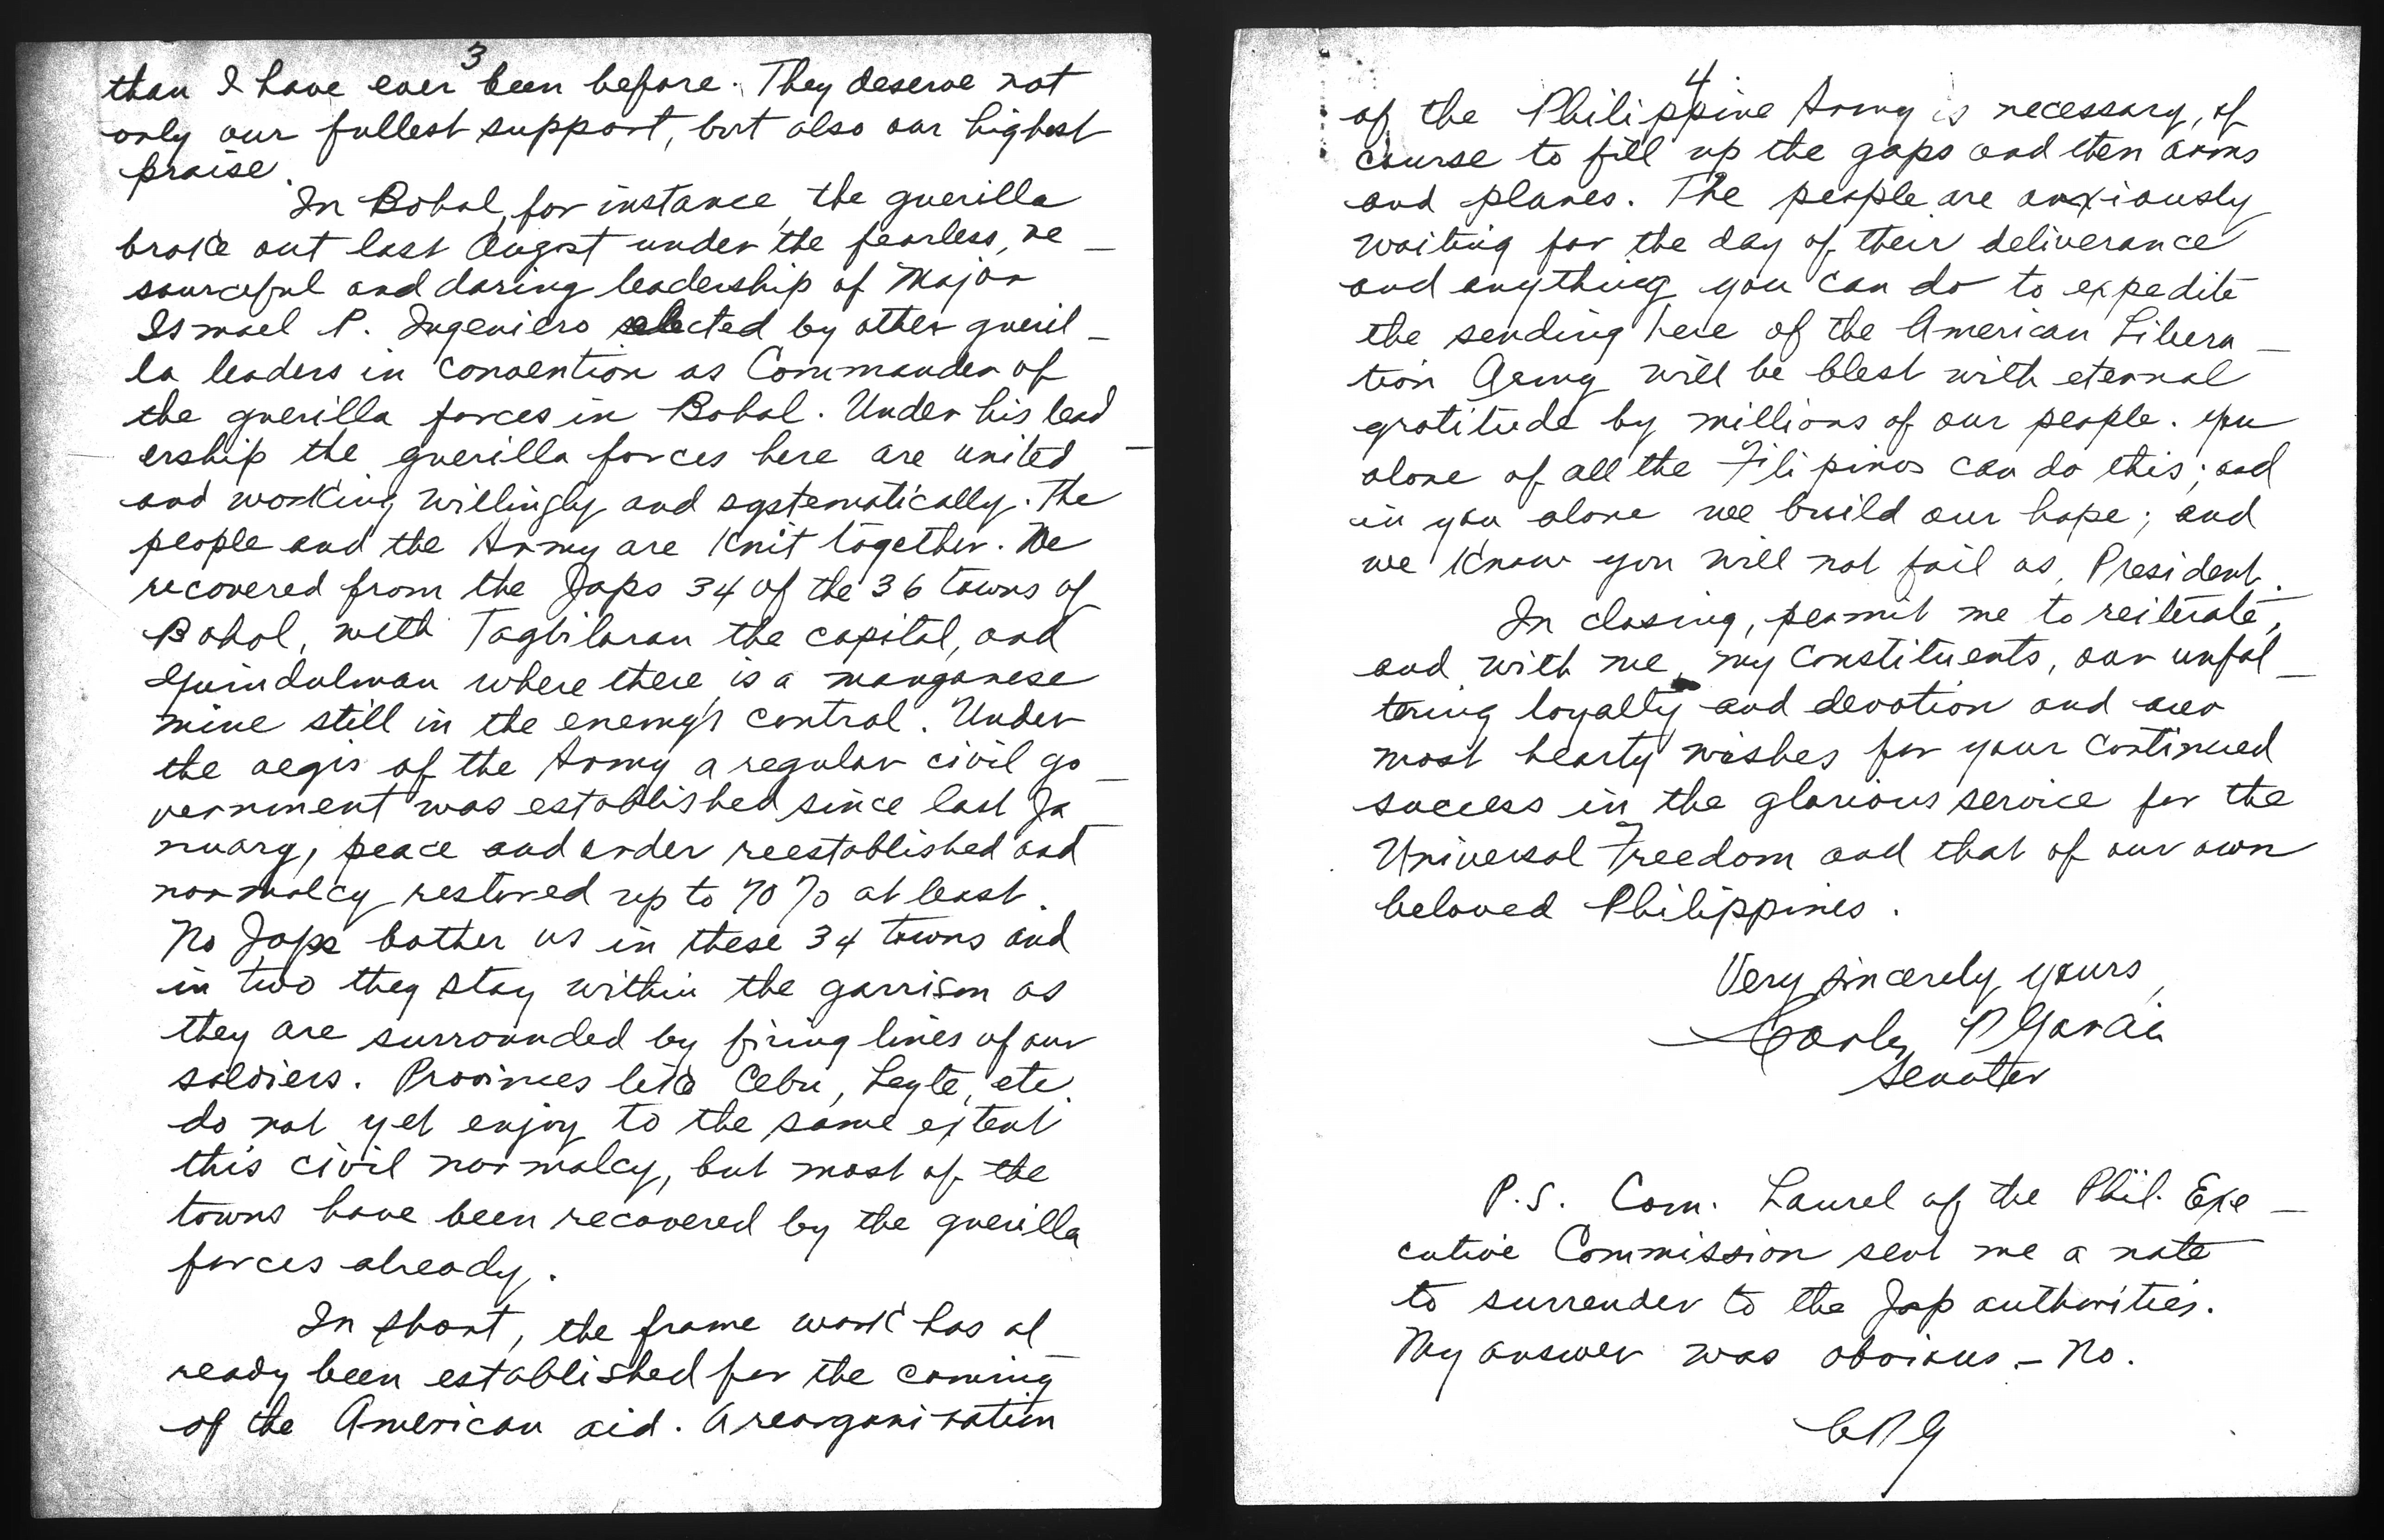 3
than I have ever been before. They deserve not
only our fullest support, but also our highest
praise.
In Bohol, for instance, the guerilla
broke out last August under the fearless, re-
sourceful and daring leadership of Major
Ismael P. Ingeniero selected by other gueril-
la leaders in convention as Commander of
the guerilla forces in Bohol. Under his lead-
ership the guerilla forces here are united
and working willingly and systematically. The
people and the Army are knit together. We
recovered from the Japs 34 of the 36 towns of
Bohol, with Tagbilaran the capital, and
Guindulman where there is a manganese
mine still in the enemy's control. Under
the aegis of the Army a regular civil go-
vernment was established since last Ja-
nuary, peace and order reestablished and
normalcy restored up to 70% at least.
No Japs bother us in these 34 towns and
in two they stay within the garrison as
they are surrounded by firing lines of our
soldiers. Provinces like Cebu, Leyte, etc.
do not yet enjoy to the same extent
this civil normalcy, but most of the
towns have been recovered by the guerilla
forces already.
In short, the frame work has al-
ready been established for the coming
of the American aid. A reorganization
4
of the Philippine Army is necessary, of
course to fill up the gaps and then arms
and planes. The people are anxiously
waiting for the day of their deliverance
and anything you can do to expedite
the sending here of the American Libera-
tion Army will be blest with eternal
gratitude by millions of our people. You
alone of all the Filipinos can do this; and
in you alone we build our hope; and
we know you will not fail us, President.
In closing, permit me to reiterate,
and with me, my constituents, our unfal-
tering loyalty and devotion and our
most hearty wishes for your continued
success in the glorious service for the
Universal Freedom and that of our own
beloved Philippines.
Very sincerely yours,
Carlos P Garcia
Senator
P.S. Com. Laurel of the Phil. Exe-
cutive Commission sent me a note
to surrender to the Jap authorities.
My answer was obvious - No.
CPG